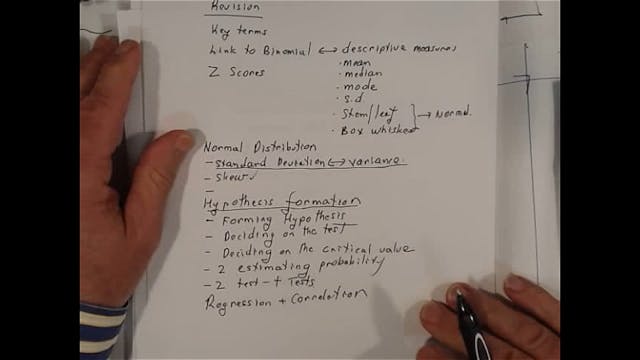 Revision
Key terms
Link to Binomial ↔ descriptive measures
· mean
Z Scores · median
· mode
· s.d
· Stem/leaf } → Normal.
· Box whisker
Normal Distribution
- Standard Deviation ↔ variance.
- Skew ✓
-
Hypothesis formation
- Forming Hypothesis
- Deciding on the test
- Deciding on the critical value
- 2 estimating probability
- 2 test - t Tests
Regression + Correlation